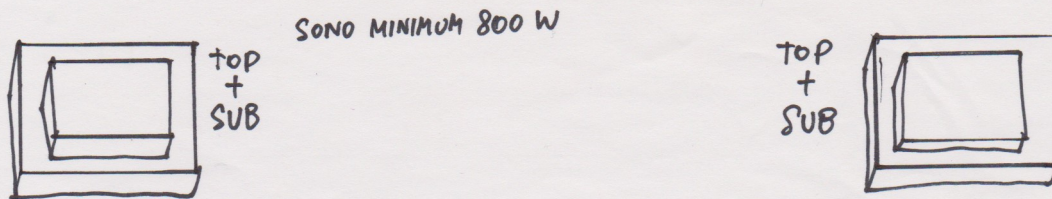 SONO MINIMUM 800 W
TOP
+
SUB
TOP
+
SUB